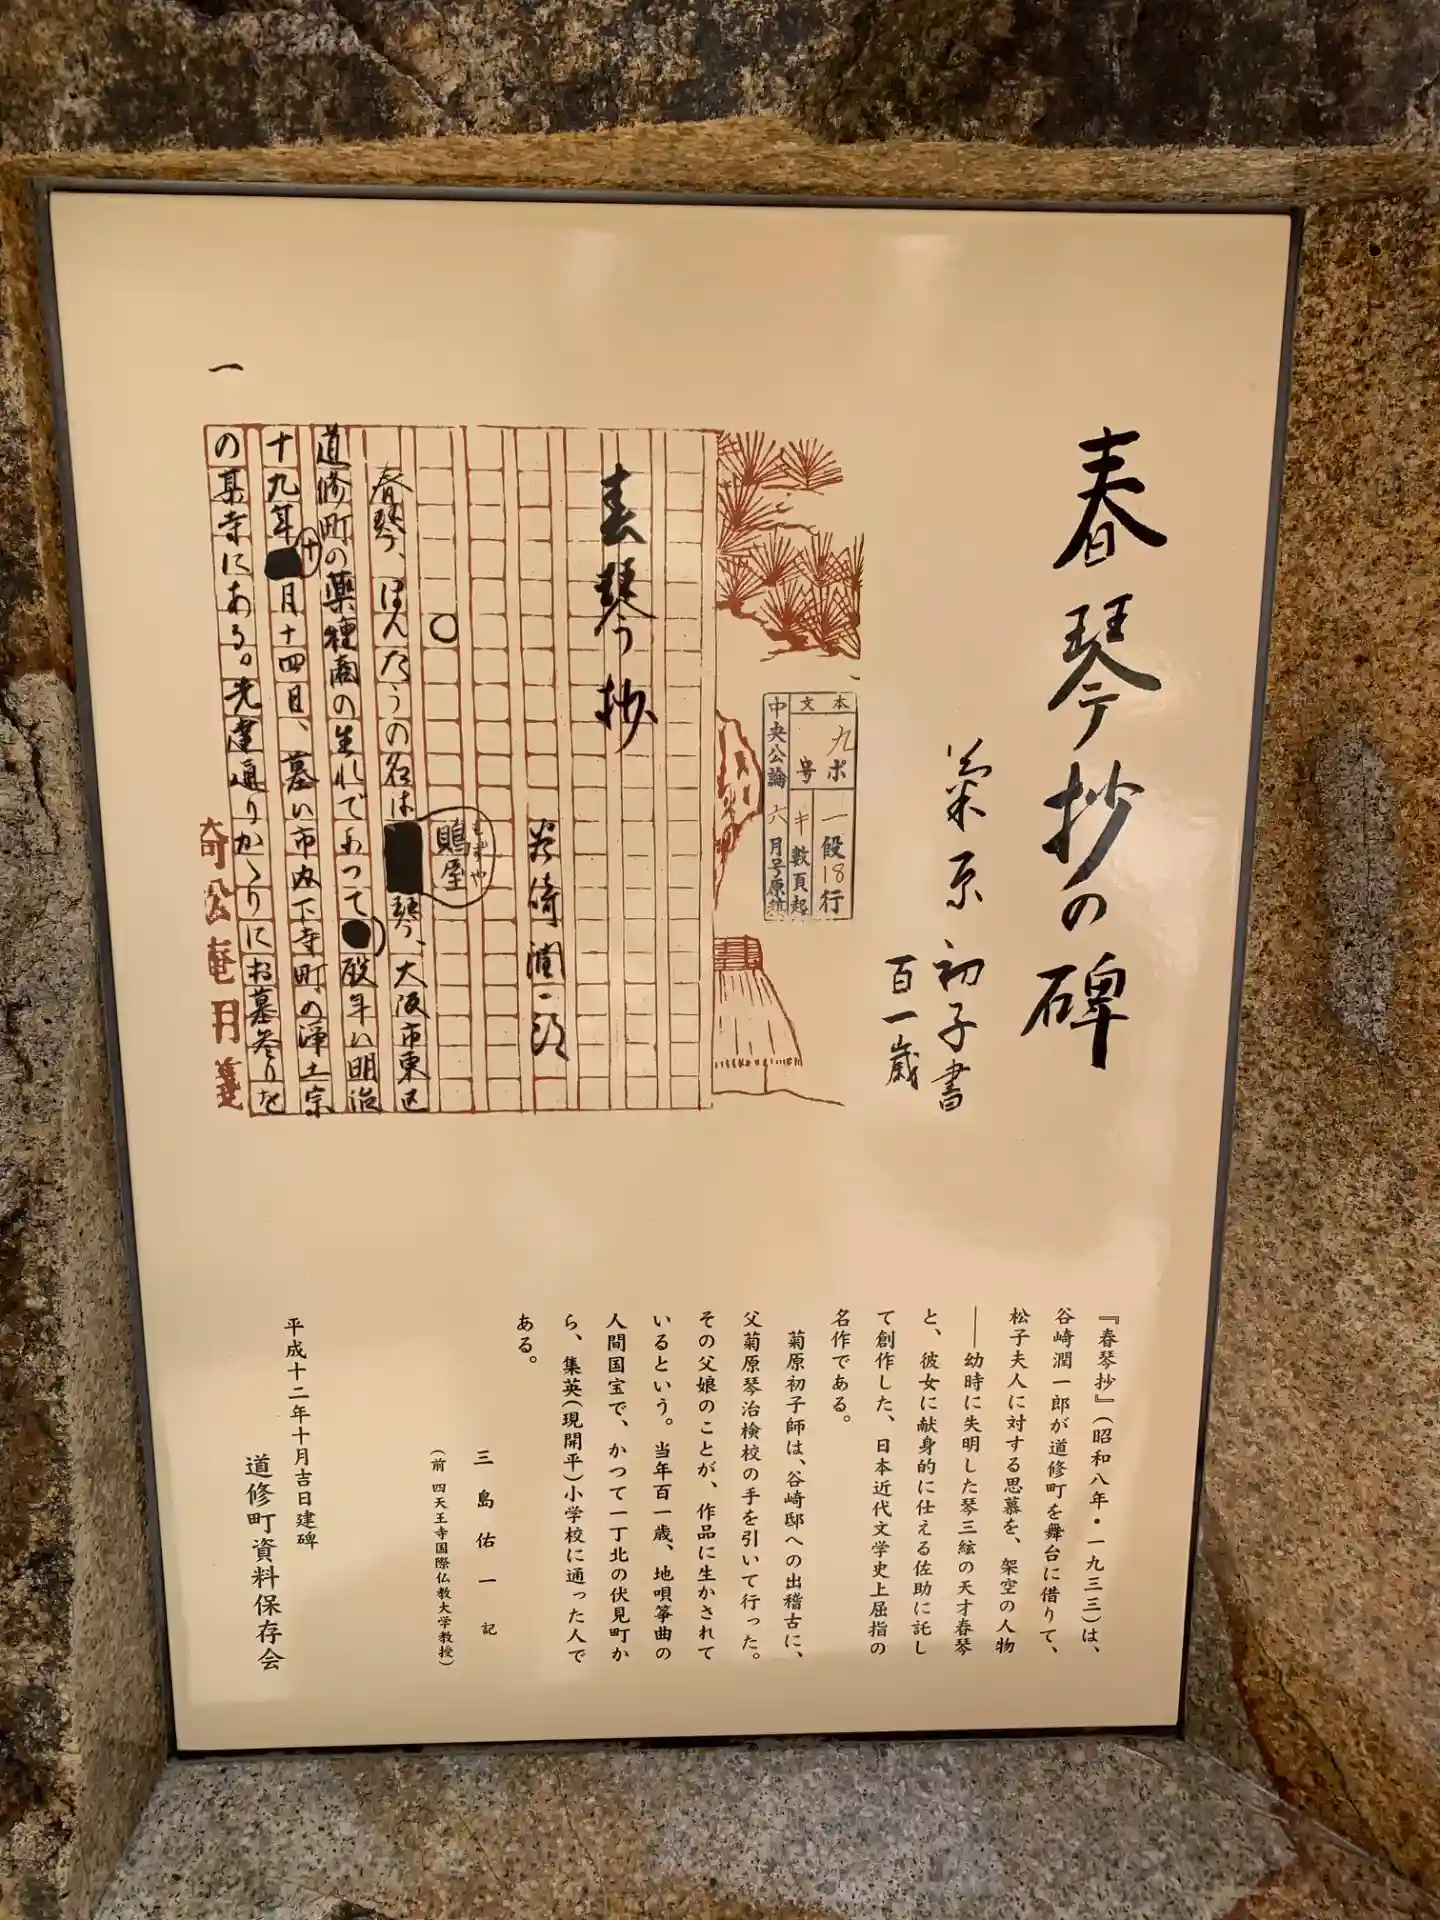 春琴抄の碑
菊原初子書
百一歳
本文
九ポ
一段18行
号
キ
数頁起
中央公論
六月号原稿
春琴抄
谷崎潤一郎
○
鵙屋
もずや
春琴、ほんたうの名は琴、大阪市東区
道修町の薬種商の生れであつて歿年は明治
十九年十月十四日、墓は市内下寺町の浄土宗
の某寺にある。先達通りかゝりにお墓参りを
一
倚松庵用箋
『春琴抄』(昭和八年・一九三三)は、
谷崎潤一郎が道修町を舞台に借りて、
松子夫人に対する思慕を、架空の人物
――幼時に失明した琴三絃の天才春琴
と、彼女に献身的に仕える佐助に託し
て創作した、日本近代文学史上屈指の
名作である。
菊原初子師は、谷崎邸への出稽古に、
父菊原琴治検校の手を引いて行った。
その父娘のことが、作品に生かされて
いるという。当年百一歳、地唄箏曲の
人間国宝で、かつて一丁北の伏見町か
ら、集英(現開平)小学校に通った人で
ある。
三島佑一 記
(前 四天王寺国際仏教大学教授)
平成十二年十月吉日建碑
道修町資料保存会